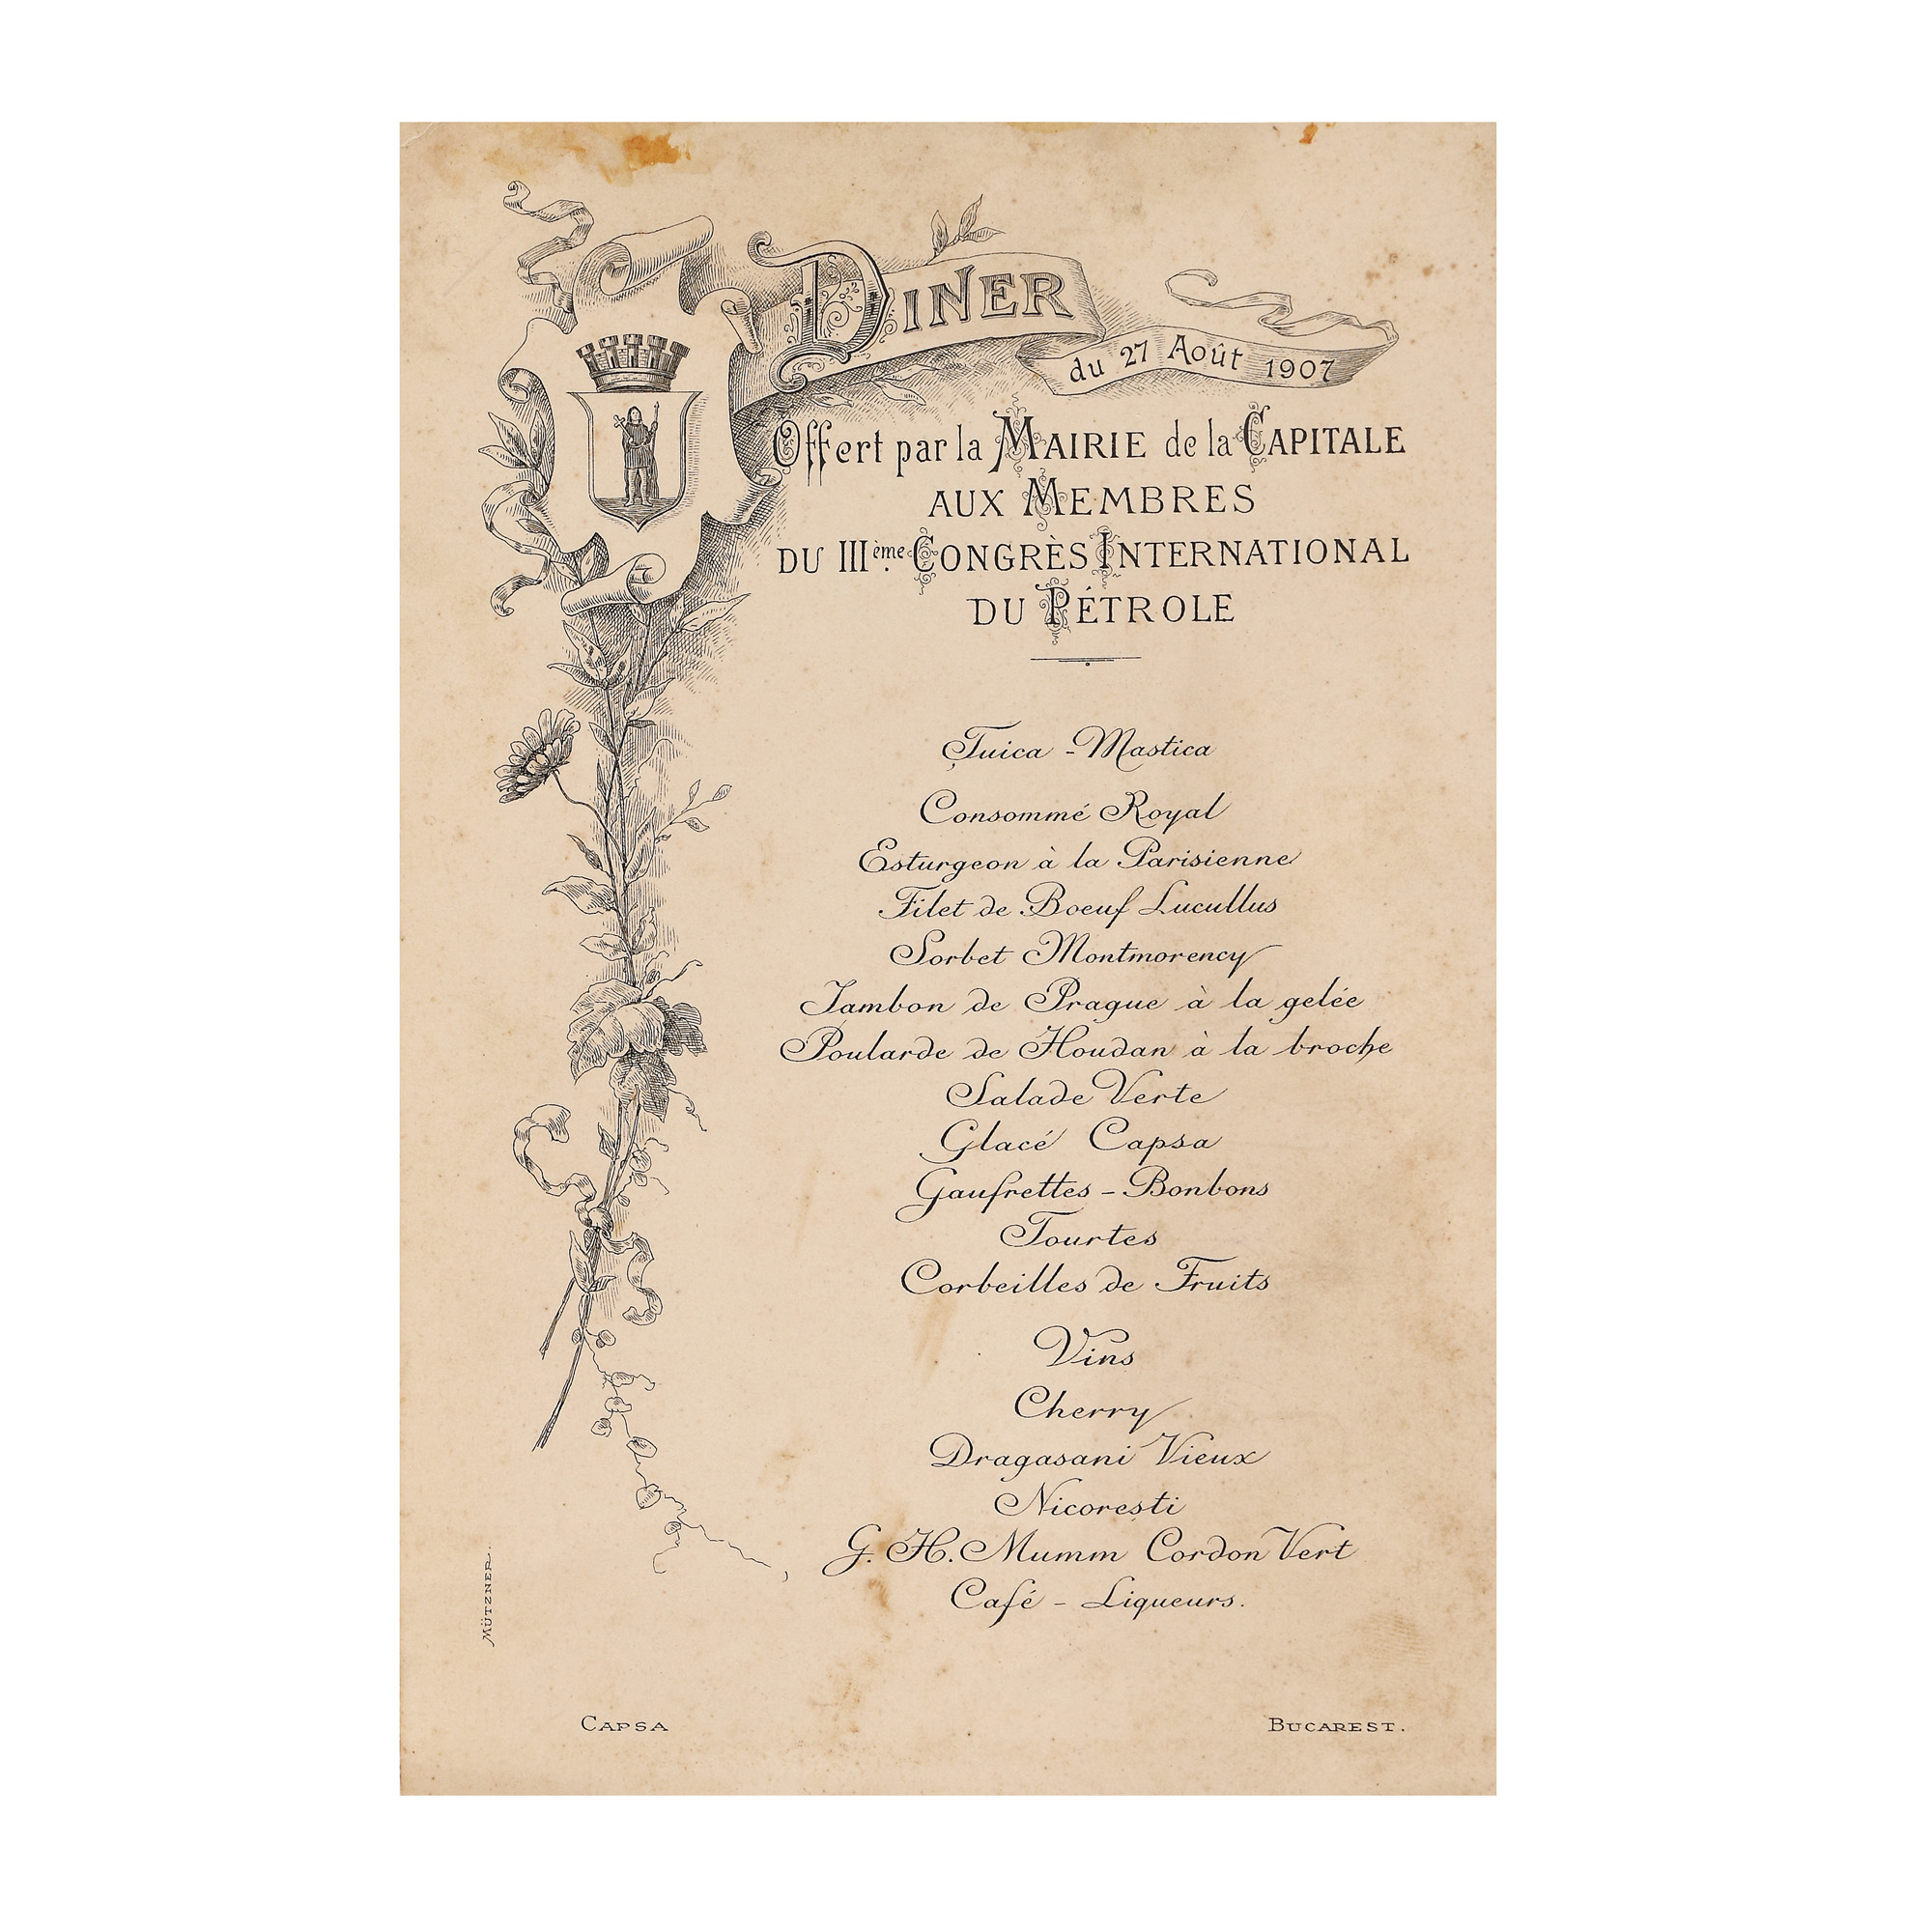 DINER
du 27 Août 1907
Offert par la MAIRIE de la CAPITALE
AUX MEMBRES
DU IIIème CONGRÈS INTERNATIONAL
DU PÉTROLE
Țuica - Mastica
Consommé Royal
Esturgeon à la Parisienne
Filet de Boeuf Lucullus
Sorbet Montmorency
Jambon de Prague à la gelée
Poularde de Houdan à la broche
Salade Verte
Glacé Capsa
Gaufrettes - Bonbons
Tourtes
Corbeilles de Fruits
Vins
Cherry
Dragasani Vieux
Nicorești
G. H. Mumm Cordon Vert
Café - Liqueurs.
MÜTZNER
CAPSA
BUCAREST.